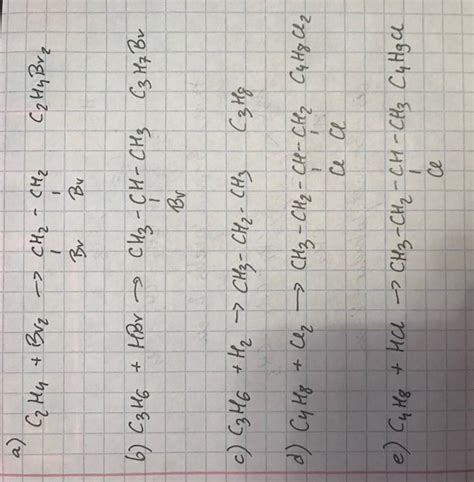 a) C2H4 + Br2 → CH2 - CH2 C2H4Br2
Br Br
b) C3H6 + HBr → CH3 - CH - CH3 C3H7Br
Br
c) C3H6 + H2 → CH3 - CH2 - CH3 C3H8
d) C4H8 + Cl2 → CH3 - CH2 - CH - CH2 C4H8Cl2
Cl Cl
e) C4H8 + HCl → CH3 - CH2 - CH - CH3 C4H9Cl
Cl